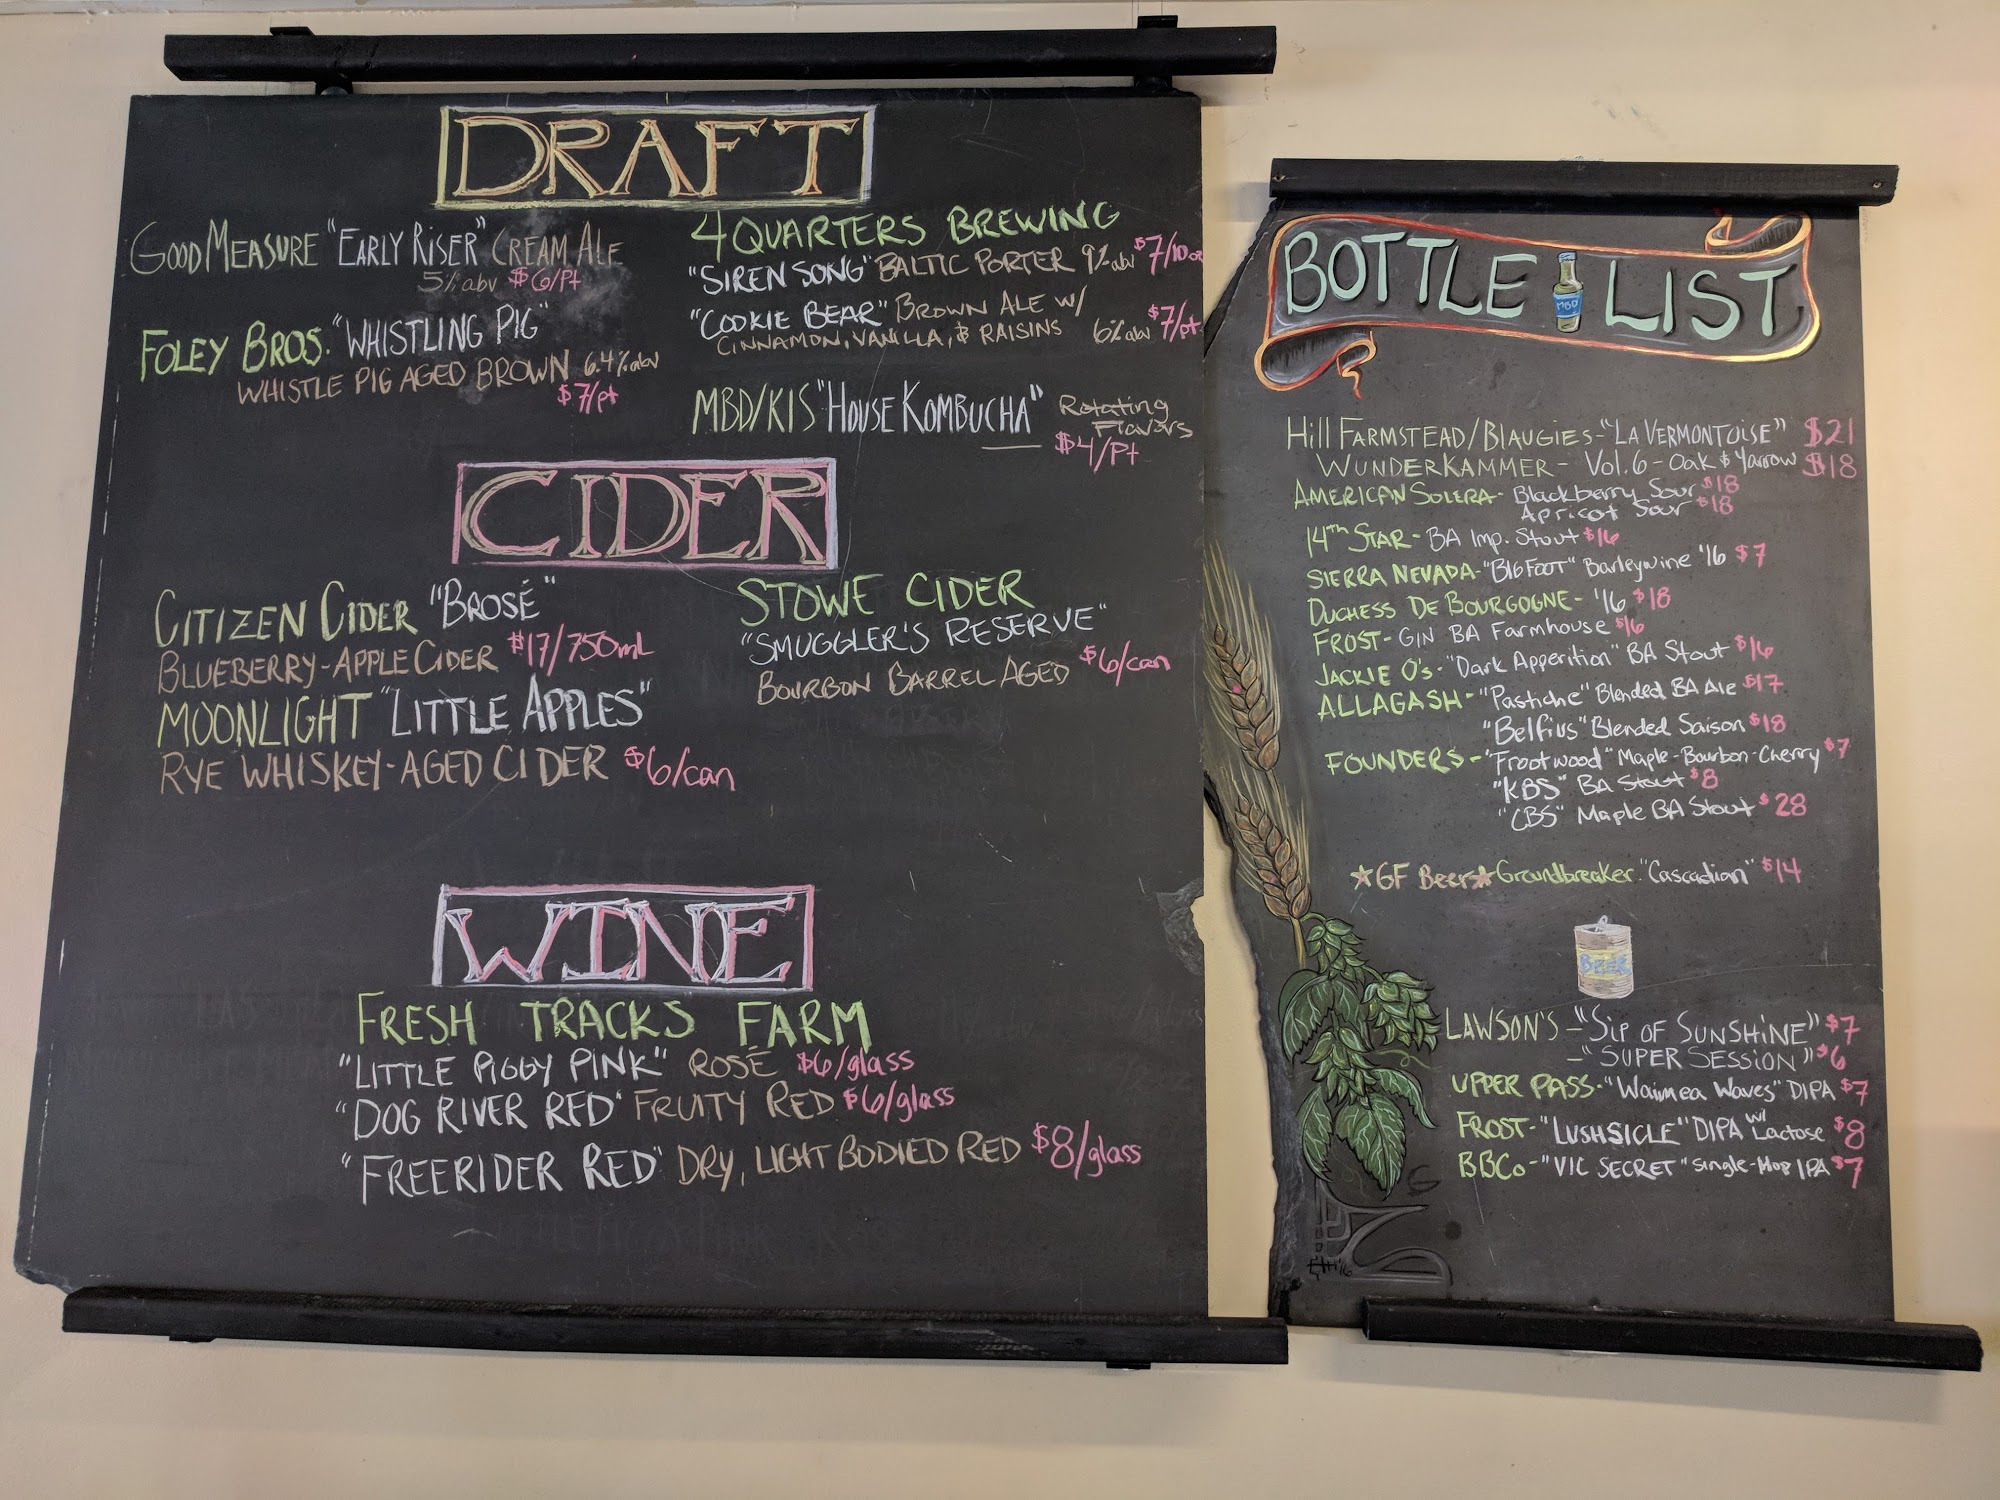 DRAFT
GOOD MEASURE "EARLY RISER" CREAM ALE
5% abv $6/pt
FOLEY BROS. "WHISTLING PIG"
WHISTLE PIG AGED BROWN 6.4% abv
$7/pt
4 QUARTERS BREWING
"SIREN SONG" BALTIC PORTER 9% abv $7/10oz
"COOKIE BEAR" BROWN ALE W/
CINNAMON, VANILLA, & RAISINS 6% abv $7/pt.
MBD/KIS "HOUSE KOMBUCHA" Rotating
Flavors
$4/Pt
CIDER
CITIZEN CIDER "BROSÉ"
BLUEBERRY-APPLE CIDER $17/750mL
MOONLIGHT "LITTLE APPLES"
RYE WHISKEY-AGED CIDER $6/can
STOWE CIDER
"SMUGGLER'S RESERVE"
BOURBON BARREL AGED $6/can
WINE
FRESH TRACKS FARM
"LITTLE PIGGY PINK" ROSÉ $6/glass
"DOG RIVER RED" FRUITY RED $6/glass
"FREERIDER RED" DRY, LIGHT BODIED RED $8/glass
BOTTLE MBD LIST
Hill FARMSTEAD/BLAUGIES-"LA VERMONTOISE" $21
WUNDERKAMMER - Vol.6 - Oak & Yarrow $18
AMERICAN SOLERA - Blackberry Sour $18
Apricot Sour $18
14th STAR - BA Imp. Stout $16
SIERRA NEVADA - "BIGFOOT" Barleywine '16 $7
DUCHESS DE BOURGOGNE - '16 $18
FROST - GIN BA Farmhouse $16
JACKIE O's - "Dark Apperition" BA Stout $16
ALLAGASH - "Pastiche" Blended BA Ale $17
"Belfius" Blended Saison $18
FOUNDERS - "Frootwood" Maple-Bourbon-Cherry $7
"KBS" BA Stout $8
"CBS" Maple BA Stout $28
★GF Beer★ Groundbreaker "Cascadian" $14
BEER
LAWSON'S - "SIP OF SUNSHINE" $7
- "SUPER SESSION" $6
UPPER PASS - "Waimea Waves" DIPA $7
FROST - "LUSHSICLE" DIPA w/ Lactose $8
BBCo - "VIC SECRET" Single-Hop IPA $7